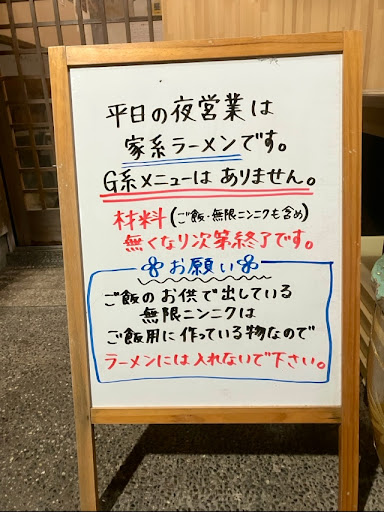 平日の夜営業は
家系ラーメンです。
G系メニューは ありません。
材料(ご飯・無限ニンニクも含め)
無くなり次第終了です。
お願い
ご飯のお供で出している
無限ニンニクは
ご飯用に作っている物なので
ラーメンには入れないで下さい。